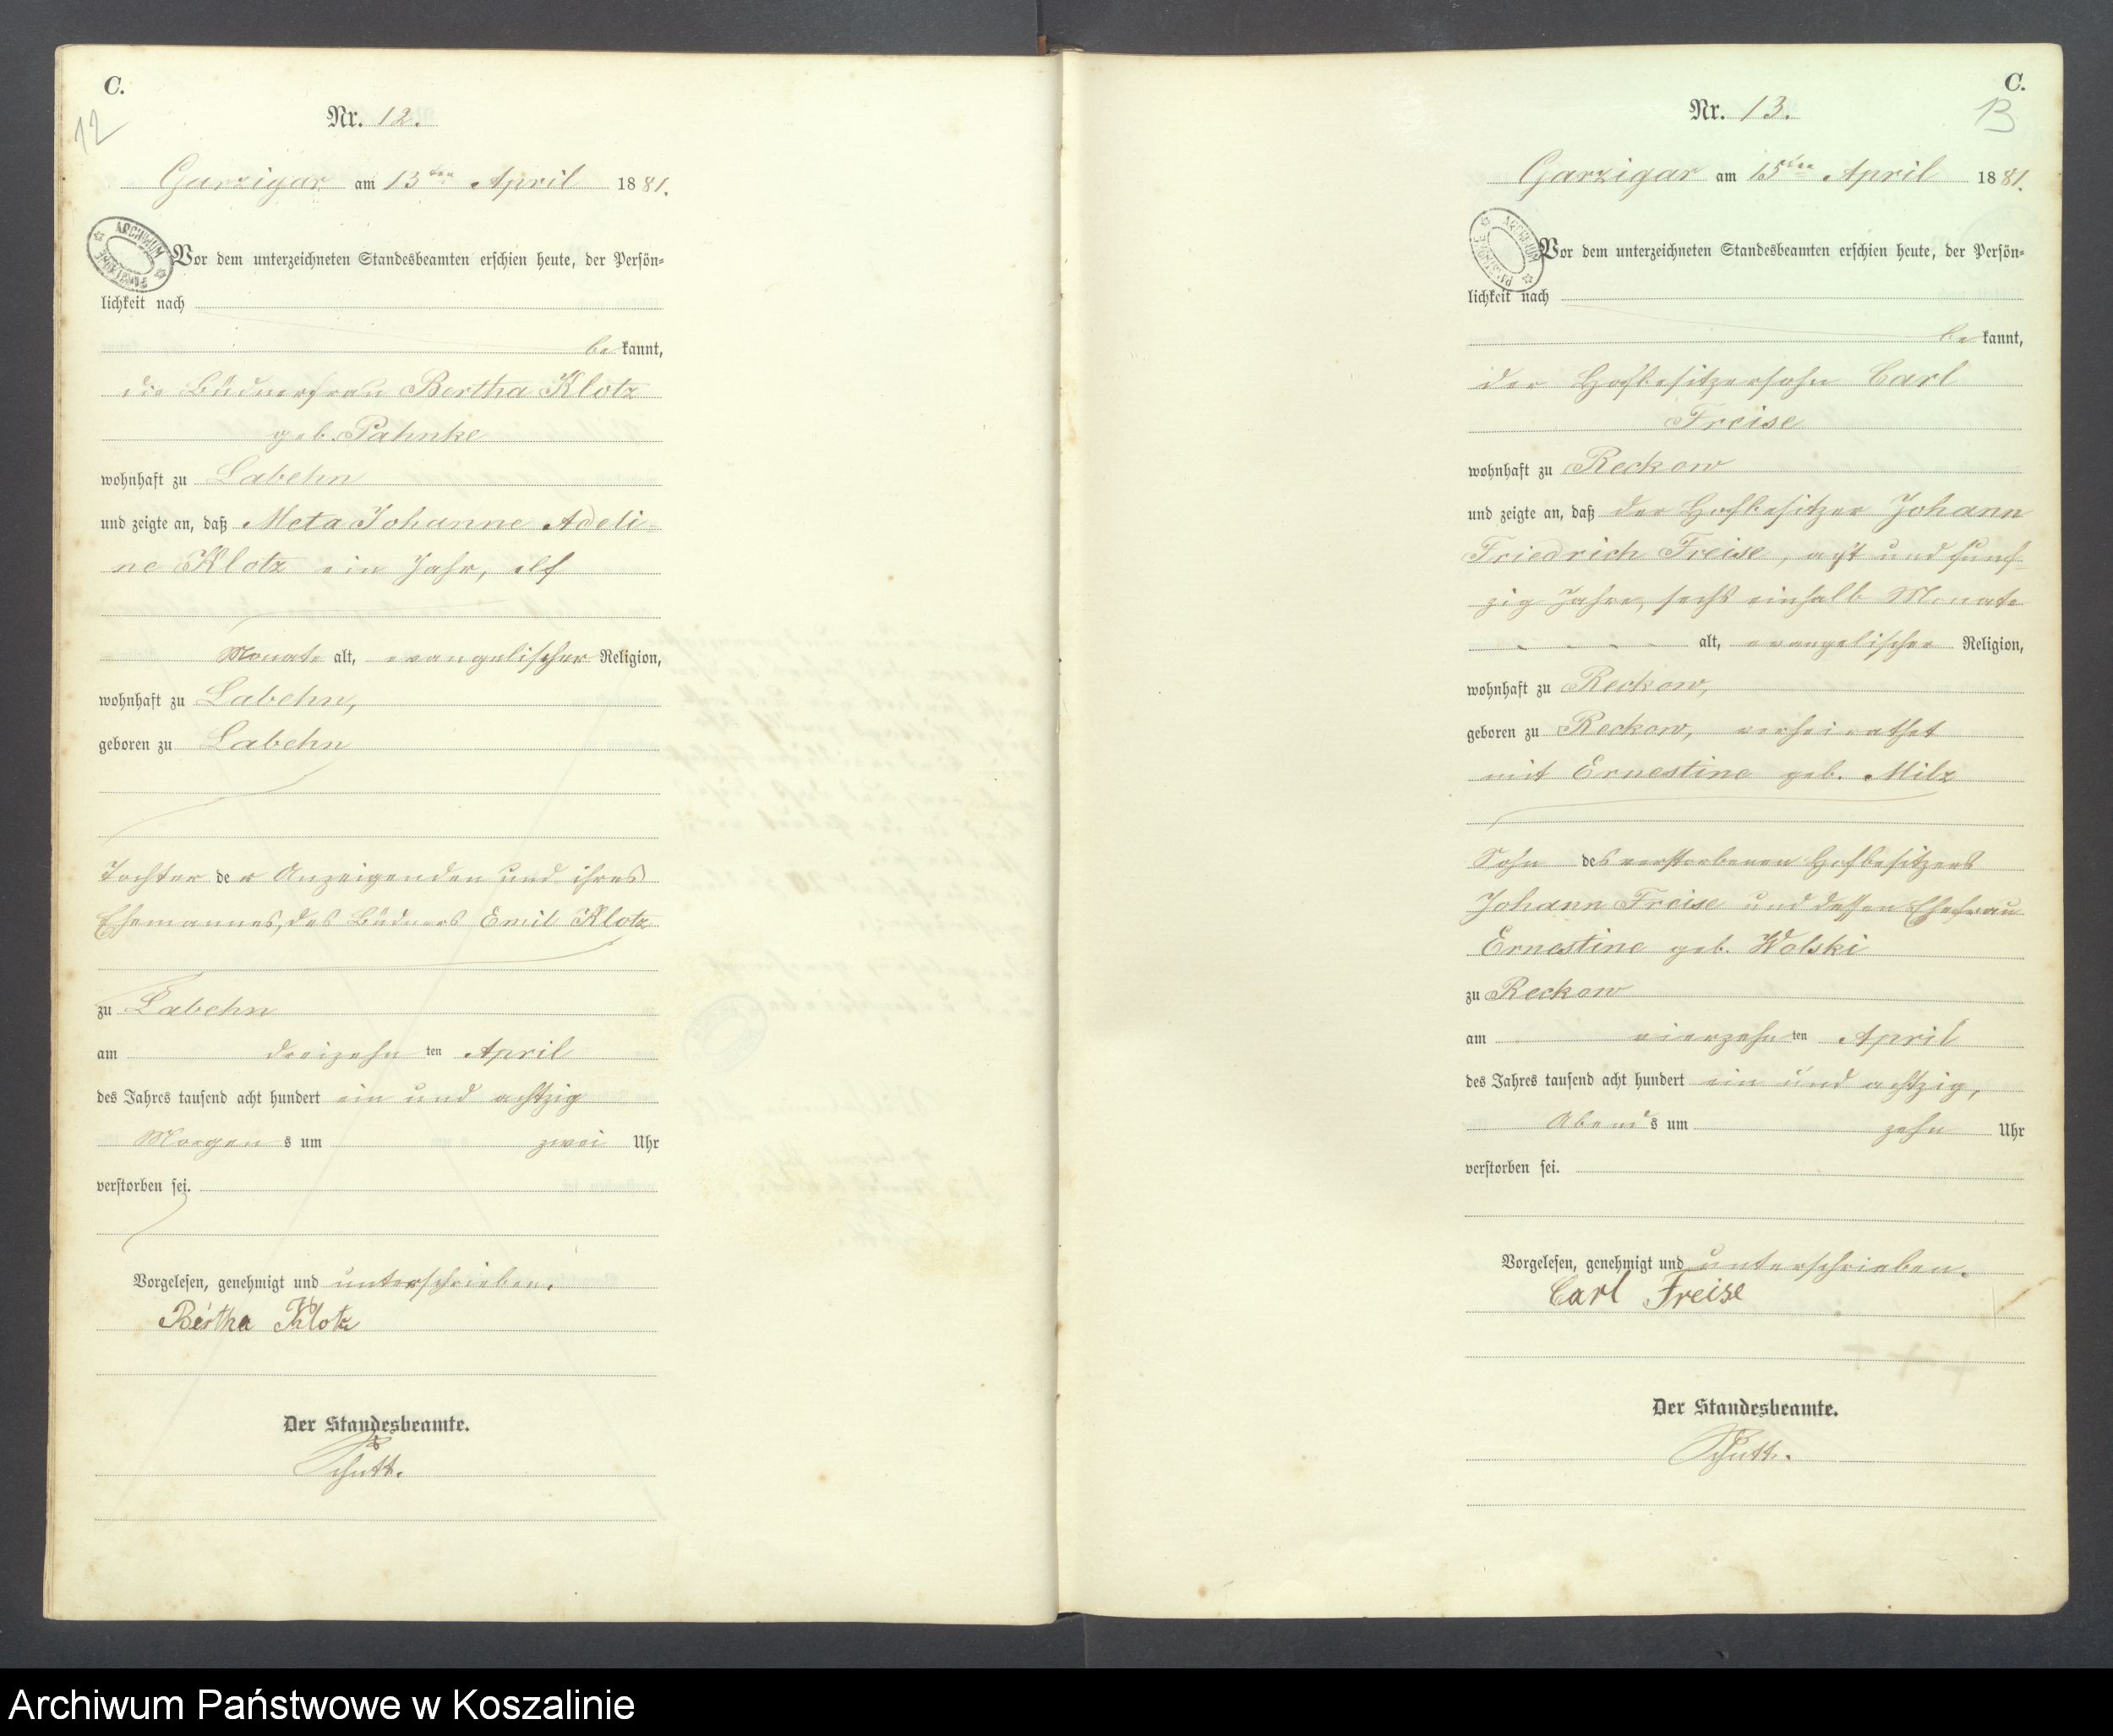 C.
12
Nr. 12.
Garzigar am 13ten April 1881.
ARCHIWUM PAŃSTWOWE
Vor dem unterzeichneten Standesbeamten erschien heute, der Persön=
lichkeit nach
be kannt,
die Büdnerfrau Bertha Klotz
geb. Pahnke
wohnhaft zu Labehn
und zeigte an, daß Meta Johanne Adeli-
ne Klotz ein Jahr, elf
Monate alt, evangelischer Religion,
wohnhaft zu Labehn,
geboren zu Labehn
Tochter der Anzeigenden und ihres
Ehemannes, des Büdners Emil Klotz
zu Labehn
am dreizehn ten April
des Jahres tausend acht hundert ein und achtzig
Morgens um zwei Uhr
verstorben sei.
Vorgelesen, genehmigt und unterschrieben.
Bertha Klotz
Der Standesbeamte.
C.
13
Nr. 13.
Garzigar am 15ten April 1881.
ARCHIWUM PAŃSTWOWE
Vor dem unterzeichneten Standesbeamten erschien heute, der Persön=
lichkeit nach
be kannt,
der Hofbesitzersohn Carl
Freise
wohnhaft zu Reckow
und zeigte an, daß der Hofbesitzer Johann
Friedrich Freise, acht und fünf-
zig Jahre, sechs einhalb Monate
alt, evangelischer Religion,
wohnhaft zu Reckow,
geboren zu Reckow, verheirathet
mit Ernestine geb. Milz
Sohn des verstorbenen Hofbesitzers
Johann Freise und dessen Ehefrau
Ernestine geb. Wolski
zu Reckow
am vierzehn ten April
des Jahres tausend acht hundert ein und achtzig,
Abends um zehn Uhr
verstorben sei.
Vorgelesen, genehmigt und unterschrieben.
Carl Freise
Der Standesbeamte.
Archiwum Państwowe w Koszalinie